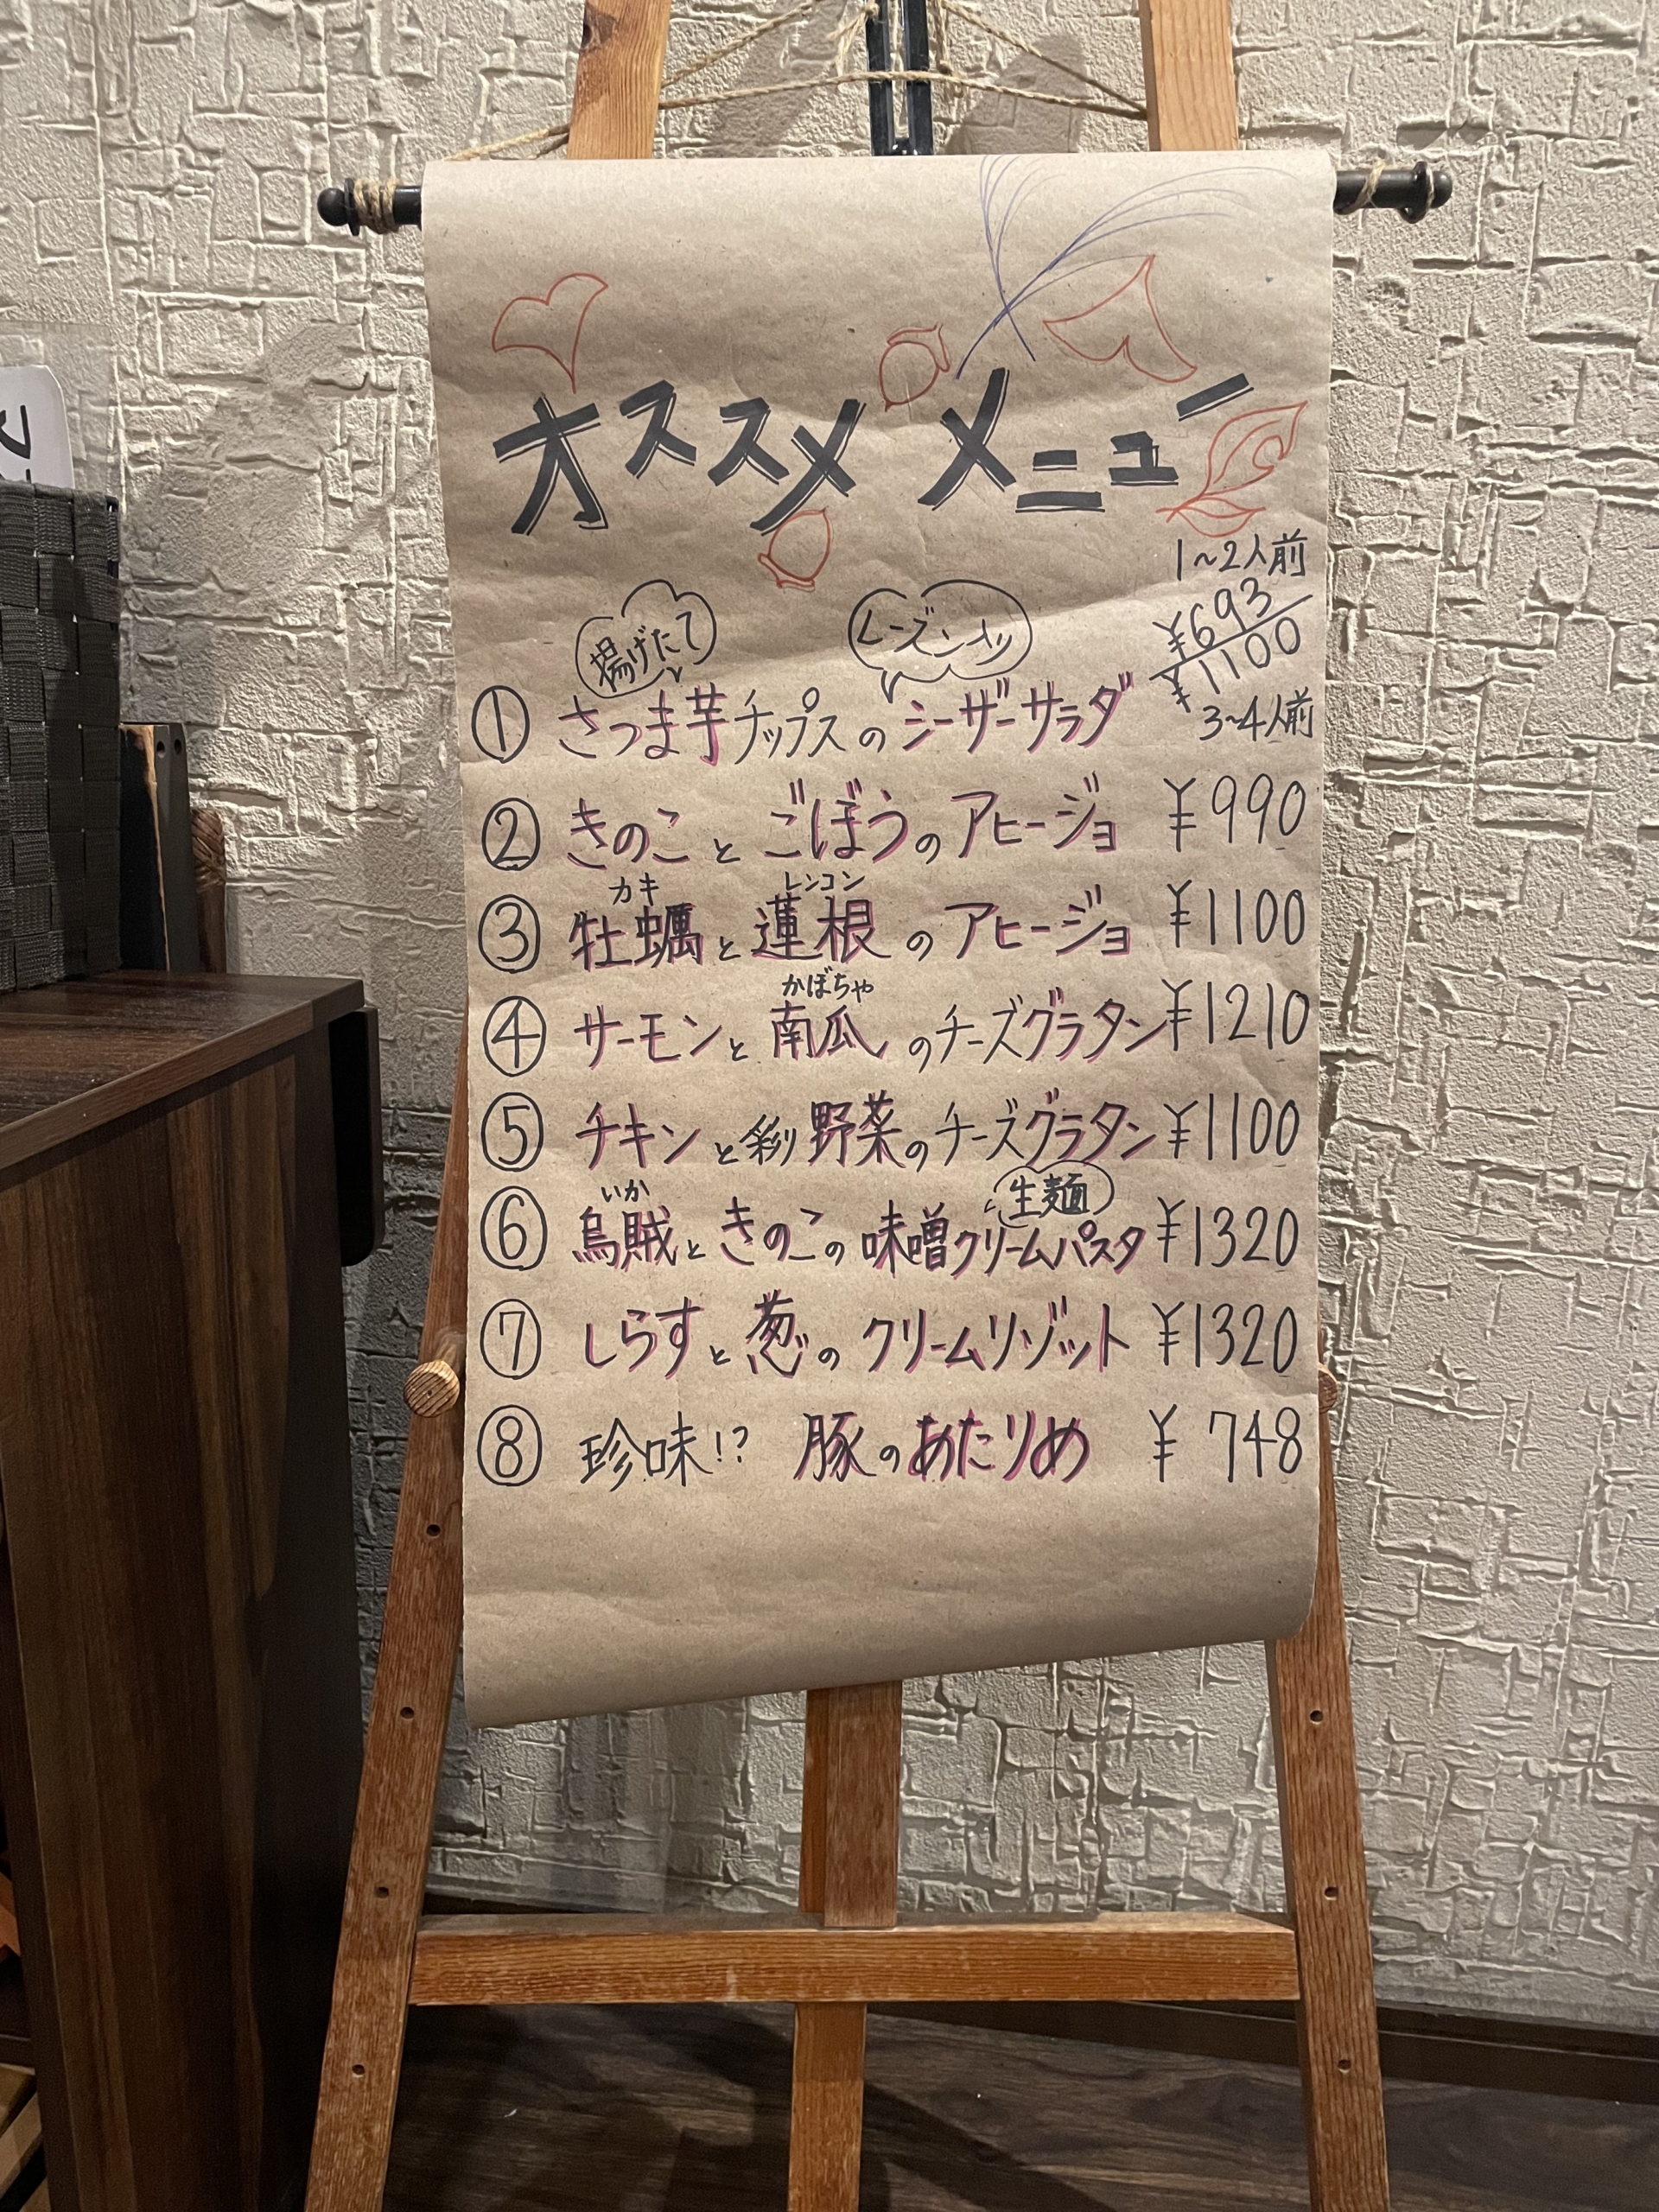 オススメメニュー
1~2人前
¥693
¥1100
3~4人前
揚げたて
レーズンイリ
① さつま芋チップスのシーザーサラダ
② きのことごぼうのアヒージョ ¥990
カキ レンコン
③ 牡蠣と蓮根のアヒージョ ¥1100
かぼちゃ
④ サーモンと南瓜のチーズグラタン ¥1210
⑤ チキンと彩り野菜のチーズグラタン ¥1100
いか 生麺
⑥ 烏賊ときのこの味噌クリームパスタ ¥1320
⑦ しらすと葱のクリームリゾット ¥1320
⑧ 珍味!? 豚のあたりめ ¥748